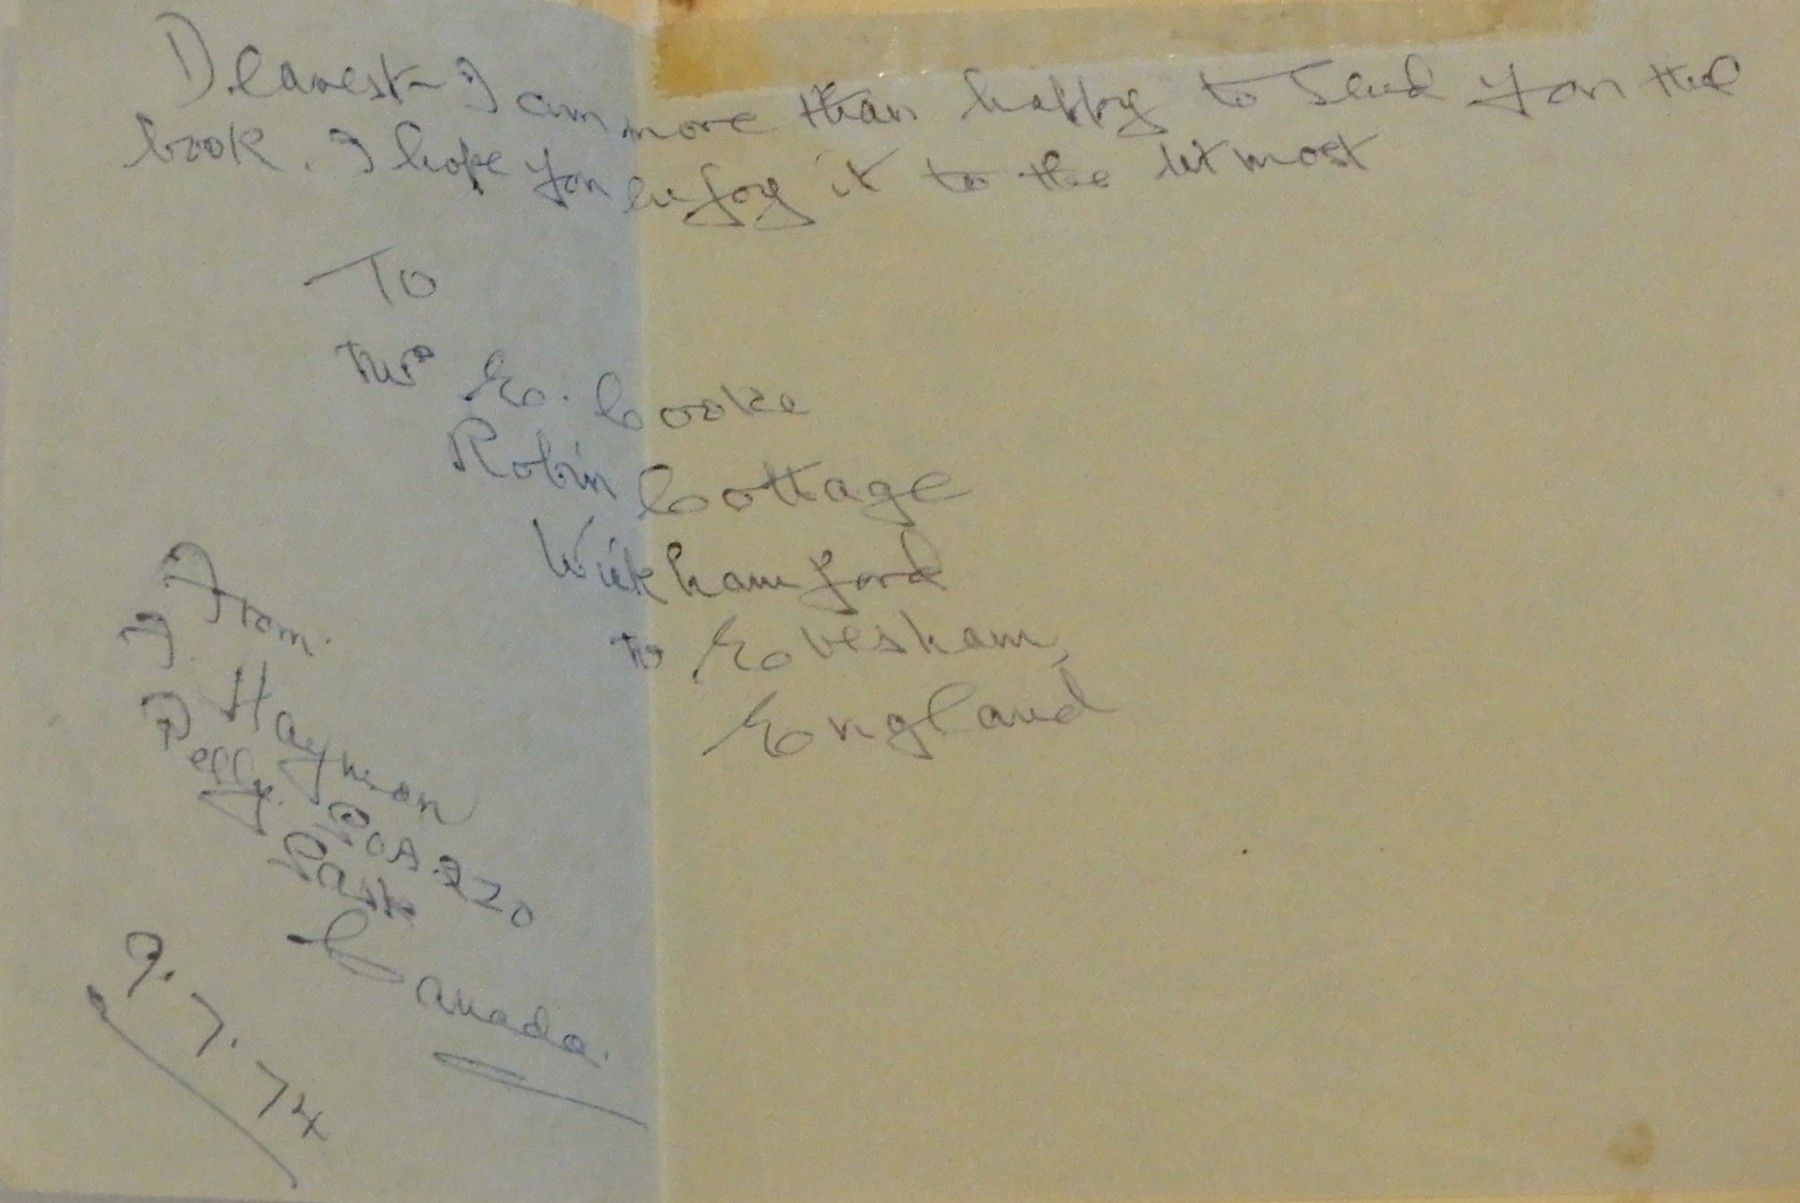 Dearest - I am more than happy to send you the
book. I hope you enjoy it to the utmost
To
Mrs E. Cooke
Robin Cottage
Wickhamford
Nr Evesham,
England
From.
J. Hayman
Pelly. S0A 2Z0
Sask
Canada.
9.7.74